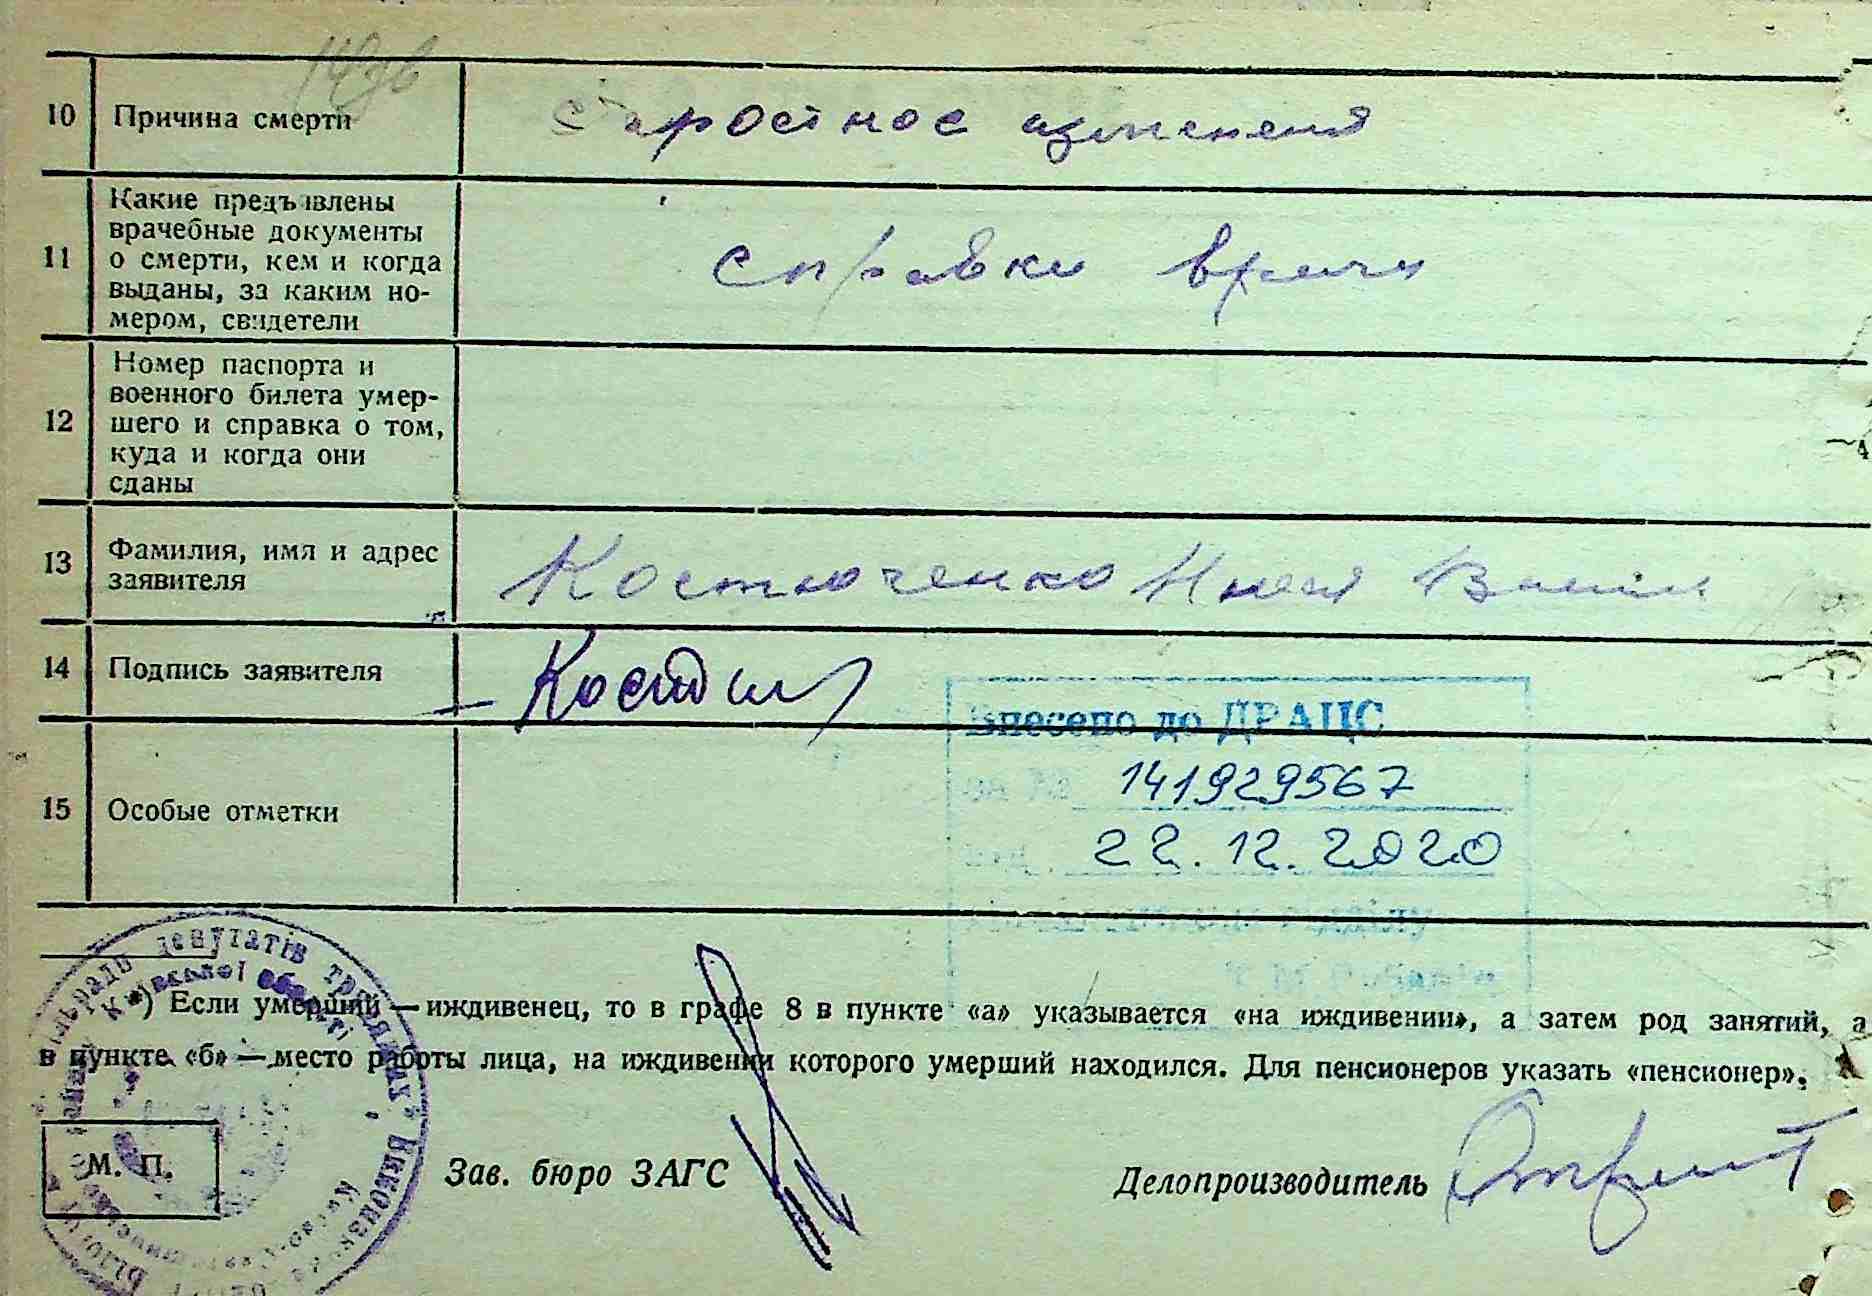 10 Причина смерти старостное изменения
11 Какие предъявлены
врачебные документы
о смерти, кем и когда
выданы, за каким но-
мером, свидетели
справка врача
12 Номер паспорта и
военного билета умер-
шего и справка о том,
куда и когда они
сданы
13 Фамилия, имя и адрес
заявителя
Костюченко
14 Подпись заявителя
Внесено до ДРАЦС
за № 141929567
від 22.12.2020
15 Особые отметки
відділу
*) Если умерший — иждивенец, то в графе 8 в пункте «а» указывается «на иждивении», а затем род занятий, а
в пункте «б» — место работы лица, на иждивении которого умерший находился. Для пенсионеров указать «пенсионер».
депутатів трудящих
Київської області
М. П.
Зав. бюро ЗАГС
Делопроизводитель